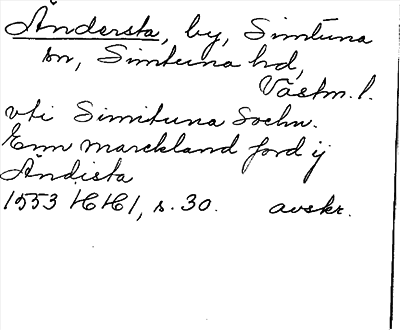 Ändersta, by, Simtuna
sn, Simtuna hd,
Västm. l.
vti Simituna Sochn.
Enn marckland jord ij
Ändista
1553 HH1, s. 30. avskr.